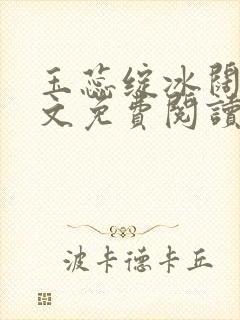 玉蕊绽冰阔
文免費閱讀
波卡德卡丘